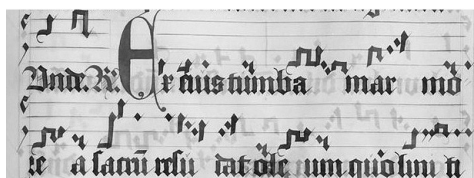 Vnde. R. Ex cuius tumba mar mo
re a sacrū resu dat oleum quo liniti